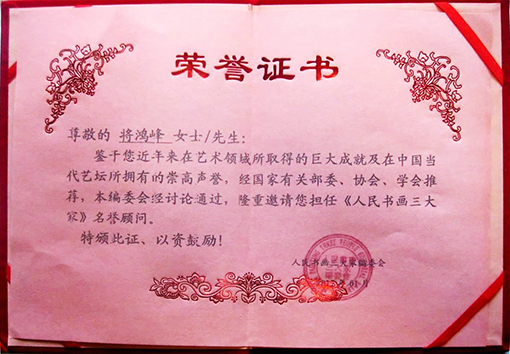 荣誉证书
尊敬的 将鸿峰 女士/先生:
鉴于您近年来在艺术领域所取得的巨大成就及在中国当
代艺坛所拥有的崇高声誉，经国家有关部委、协会、学会推
荐，本编委会经讨论通过，隆重邀请您担任《人民书画三大
家》名誉顾问。
特颁此证、以资鼓励!
人民书画三大家编委会